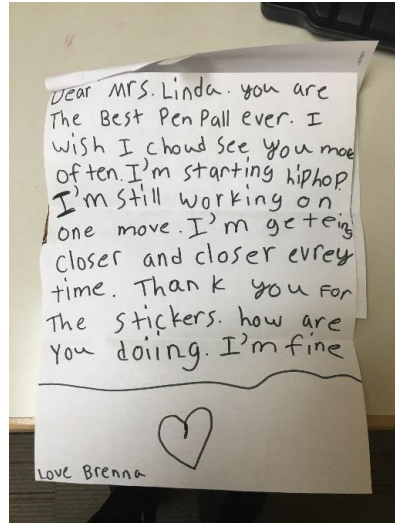 Dear Mrs. Linda. you are
The Best Pen Pall ever. I
wish I choud see you more
often. I'm starting hiphop.
I'm still working on
one move. I'm geteing
closer and closer evrey
time. Thank you For
The stickers. how are
you doiing. I'm fine
Love Brenna